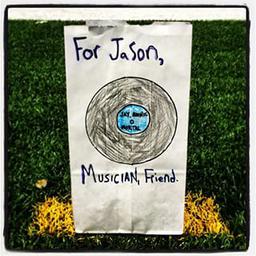 For Jason,
MUSICIAN, Friend.